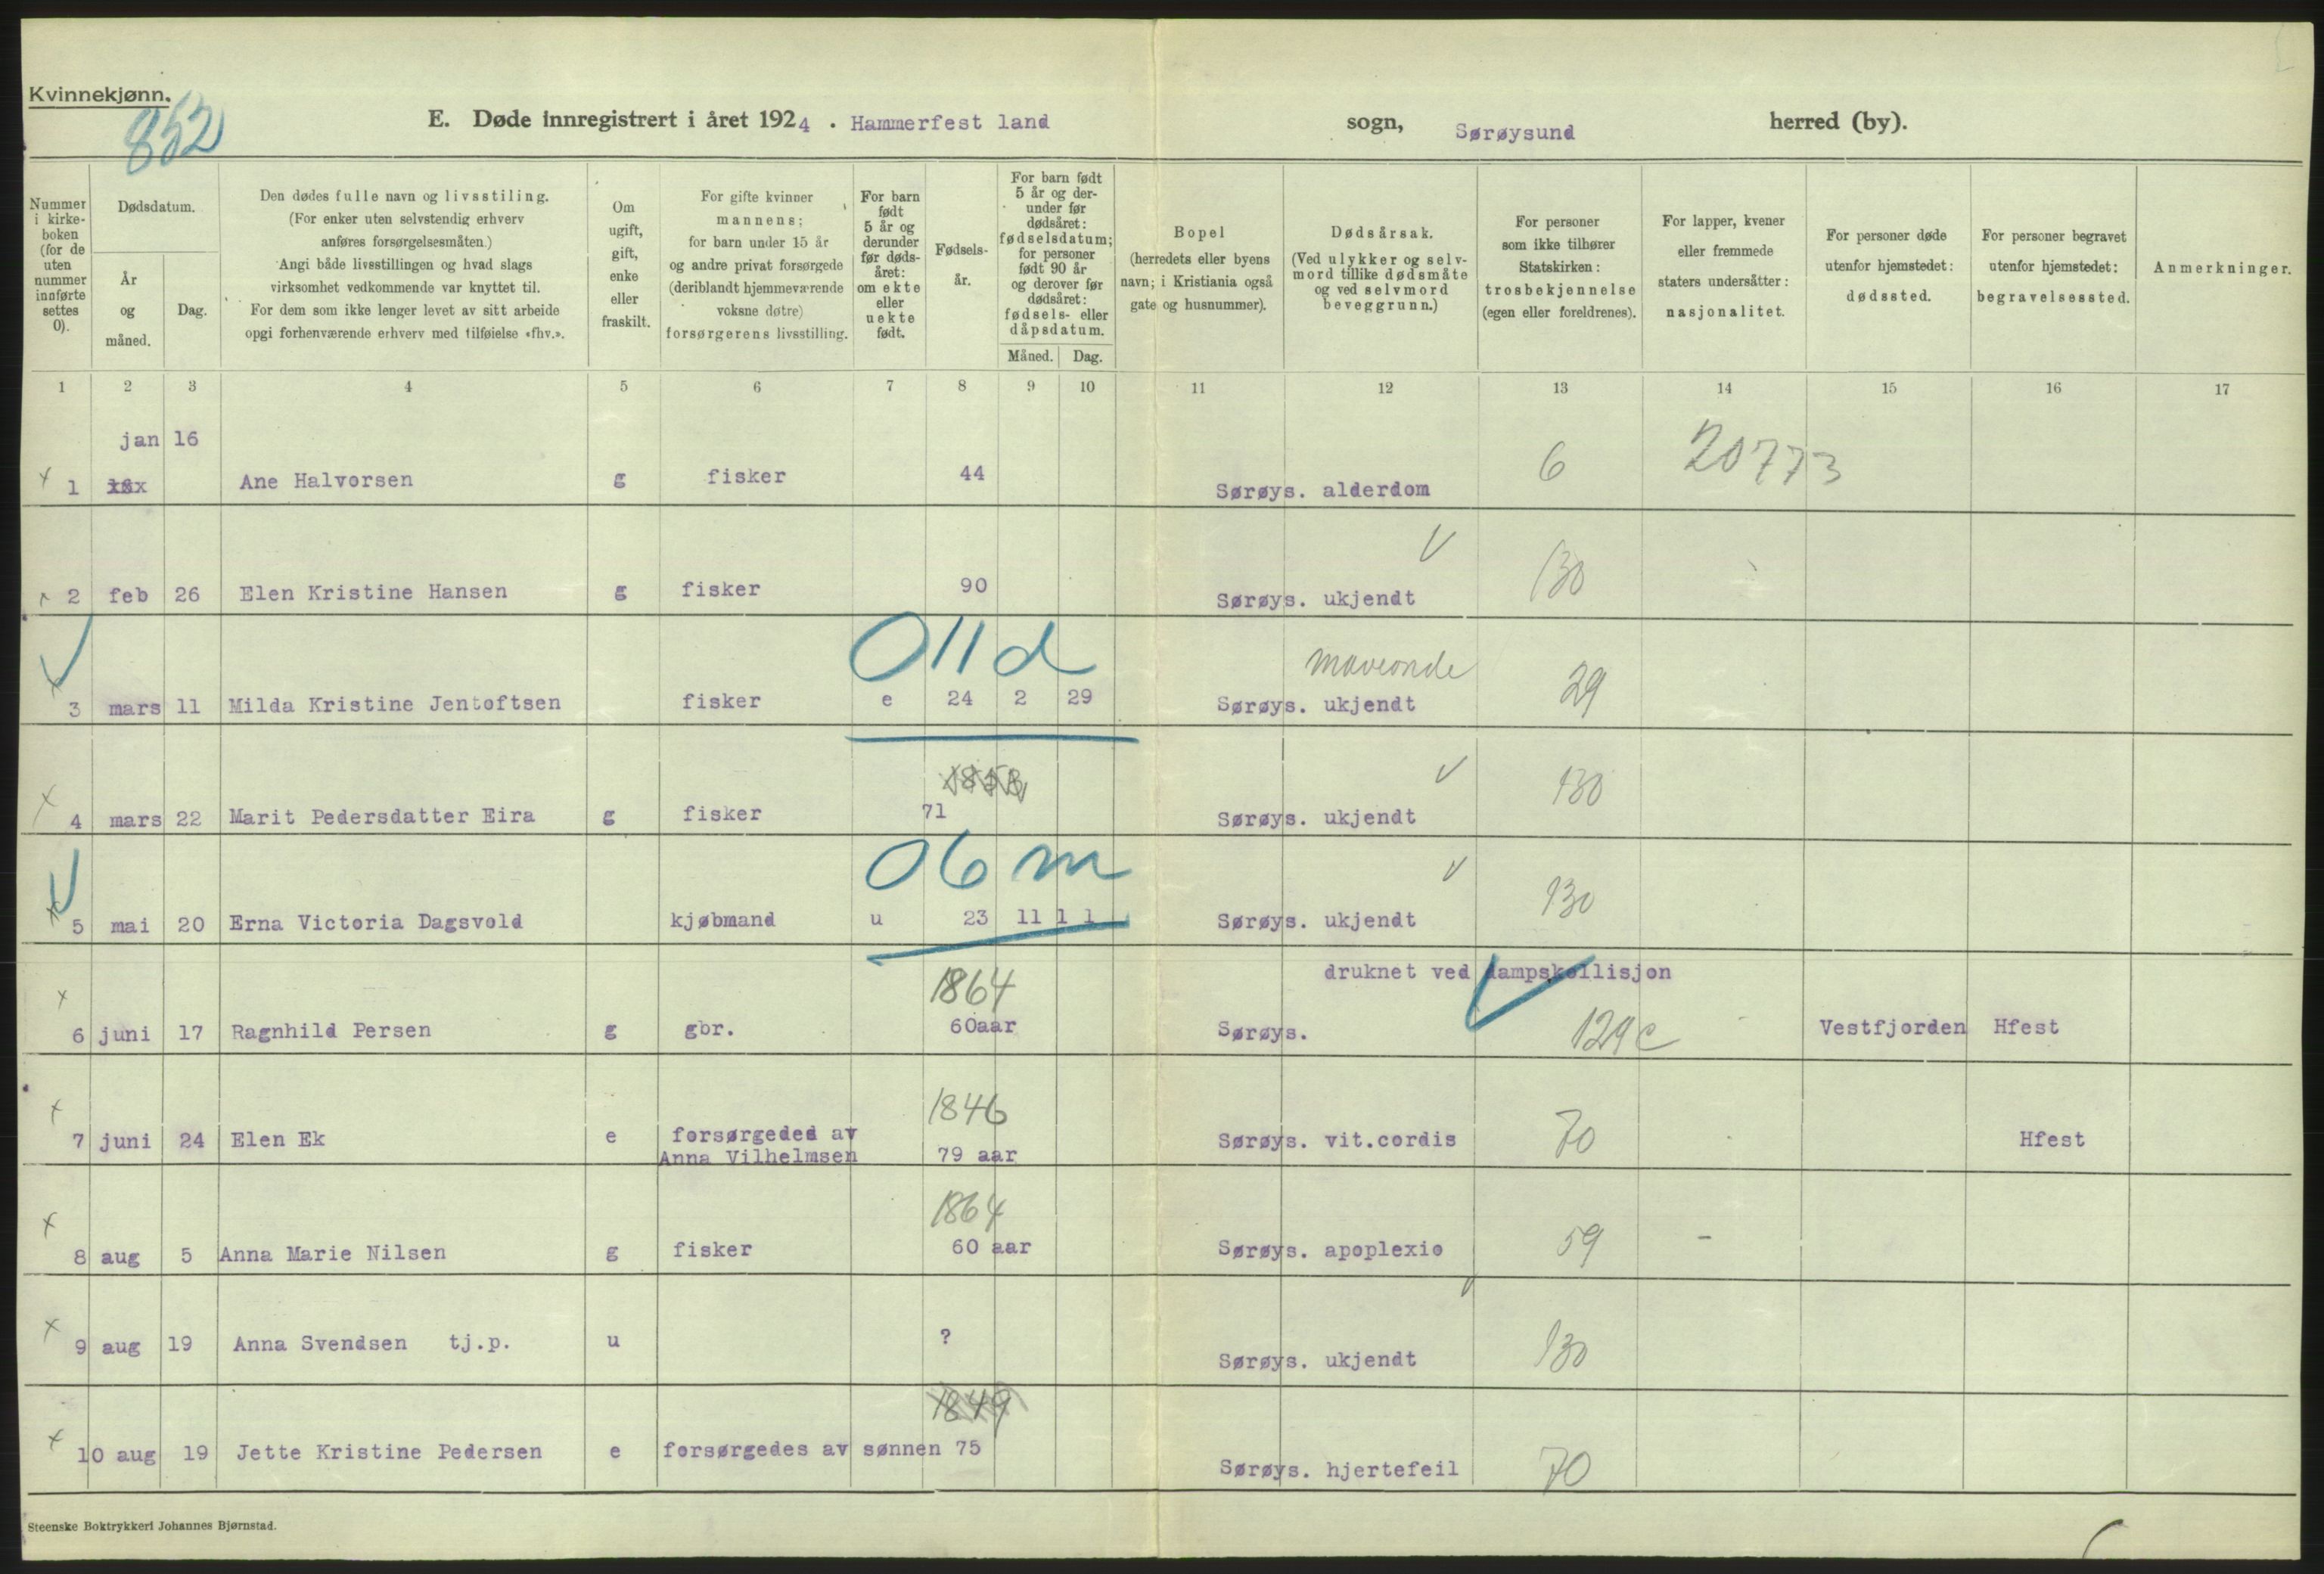 Kvinnekjønn.
852
E. Døde innregistrert i året 1924 . Hammerfest land sogn, Sørøysund herred (by).
Nummer i kirke- boken (for de uten nummer innførte settes 0).
Dødsdatum.
År og måned.
Dag.
Den dødes fulle navn og livsstiling.
(For enker uten selvstendig erhverv
anføres forsørgelsesmåten.)
Angi både livsstillingen og hvad slags
virksomhet vedkommende var knyttet til.
For dem som ikke lenger levet av sitt arbeide
opgi forhenværende erhverv med tilføielse «fhv.».
Om ugift, gift, enke eller fraskilt.
For gifte kvinner
mannens;
for barn under 15 år
og andre privat forsørgede
(deriblandt hjemmeværende
voksne døtre)
forsørgerens livsstilling.
For barn født 5 år og derunder før døds- året: om ekte eller uekte født.
Fødsels- år.
For barn født 5 år og der- under før dødsåret: fødselsdatum; for personer født 90 år og derover før dødsåret: fødsels- eller dåpsdatum.
Måned. Dag.
Bopel
(herredets eller byens
navn; i Kristiania også
gate og husnummer).
Dødsårsak.
(Ved ulykker og selv-
mord tillike dødsmåte
og ved selvmord
beveggrunn.)
For personer
som ikke tilhører
Statskirken:
trosbekjennelse
(egen eller foreldrenes).
For lapper, kvener
eller fremmede
staters undersåtter:
nasjonalitet.
For personer døde
utenfor hjemstedet:
dødssted.
For personer begravet
utenfor hjemstedet:
begravelsessted.
Anmerkninger.
1 2 3 4 5 6 7 8 9 10 11 12 13 14 15 16 17
jan 16
1 Ane Halvorsen g fisker 44 Sørøys. alderdom 6 20773
2 feb 26 Elen Kristine Hansen g fisker 90 Sørøys. ukjendt 130
011d
maveonde
3 mars 11 Milda Kristine Jentoftsen fisker e 24 2 29 Sørøys. ukjendt 29
4 mars 22 Marit Pedersdatter Eira g fisker 71 Sørøys. ukjendt 130
06m
5 mai 20 Erna Victoria Dagsvold kjøbmand u 23 11 1 1 Sørøys. ukjendt 130
1864 druknet ved dampskollisjon
6 juni 17 Ragnhild Persen g gbr. 60aar Sørøys. 129c Vestfjorden Hfest
1846
7 juni 24 Elen Ek e forsørgeded av Sørøys. vit.cordis 70 Hfest
Anna Vilhelmsen 79 aar
1864
8 aug 5 Anna Marie Nilsen g fisker 60 aar Sørøys. apoplexio 59 -
9 aug 19 Anna Svendsen tj.p. u ? Sørøys. ukjendt 130
1849
10 aug 19 Jette Kristine Pedersen e forsørgedes av sønnen 75 Sørøys. hjertefeil 70
Steenske Boktrykkeri Johannes Bjørnstad.